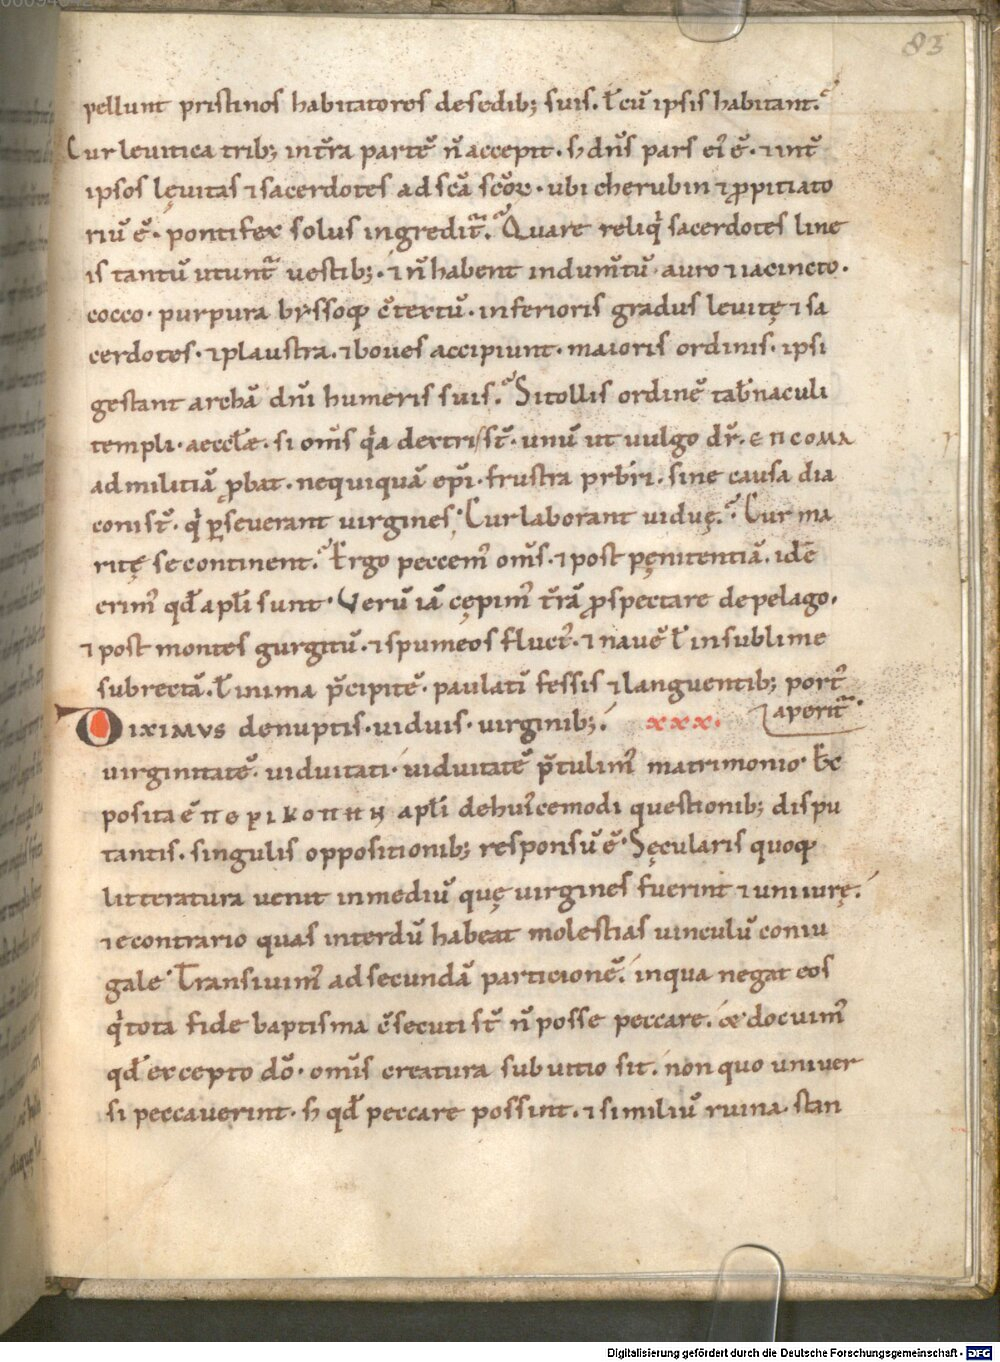 83
pellunt pristinos habitatores desedib; suis. ł cū ipsis habitant.
Cur leuitica trib; int̄ra partē n̄ accepit. ꝫ dn̄s pars ei ē. ⁊ int̄
ipsos lęuitas ⁊ sacerdotes ad scā scōꝝ. ubi cherubin ⁊ ꝓpitiato
riū ē. pontifex solus ingredit̄. Quare reliq̇ sacerdotes line
is tantū utunt̄ uestib;. ⁊ n̄ habent indum̄tū auro ⁊ iacincto.
cocco. purpura byssoqꝫ c̄textū. inferioris gradus leuitę ⁊ sa
cerdotes. ⁊ plaustra. ⁊ boues accipiunt. maioris ordinis. ipsi
gestant archā dn̄i humeris suis. Si tollis ordinē tab̄naculi
templi. aeccłæ. si om̄s q̇a dextri st̄. unū ut uulgo dr̄. ЄΠCOMΛ
ad militiā ꝓbat. nequiquā ep̄i. frustra prb̄ri. sine causa dia
coni st̄. q̇ ꝑseuerant uirgines; Cur laborant uiduę. Cur ma
ritę se continent. Ergo peccem̉ om̄s. ⁊ post pęnitentiā. idē
erim̉ qđ apłi sunt. Verū iā cępim̉ t̄rā ꝓspectare de pelago.
⁊ post montes gurgitū. ⁊ spumeos fluct̉. ⁊ nauē ł in sublime
subrectā. ł in ima p̄cipitē. paulatī fessis ⁊ languentib; port̉
DIXIMVS denuptis. uiduis. uirginib;. xxx. aperit̄.
uirginitatē. uiduitati. uiduitatē p̄tulim̉ matrimonio. Ex
posita ē ΠЄΡΙΚΟΠΗΗ apłi de huỉcemodi questionib; dispu
tantis. singulis oppositionib; responsū ē. Sęcularis quoqꝫ
litteratura uenit in mediū quę uirgines fuerint ⁊ uniiurę.
⁊ econtrario quas interdū habeat molestias uinculū coniu
gale. Transiuim̉ ad secundā particionē. in qua negat eos
q̇ tota fide baptisma c̄secuti st̄ n̄ posse peccare. & docuim̉
qđ excepto dō. om̄s creatura sub uitio sit. non quo uniuer
si peccauerint. ꝫ qđ peccare possint. ⁊ similiū ruina. stan
Digitalisierung gefördert durch die Deutsche Forschungsgemeinschaft - DFG